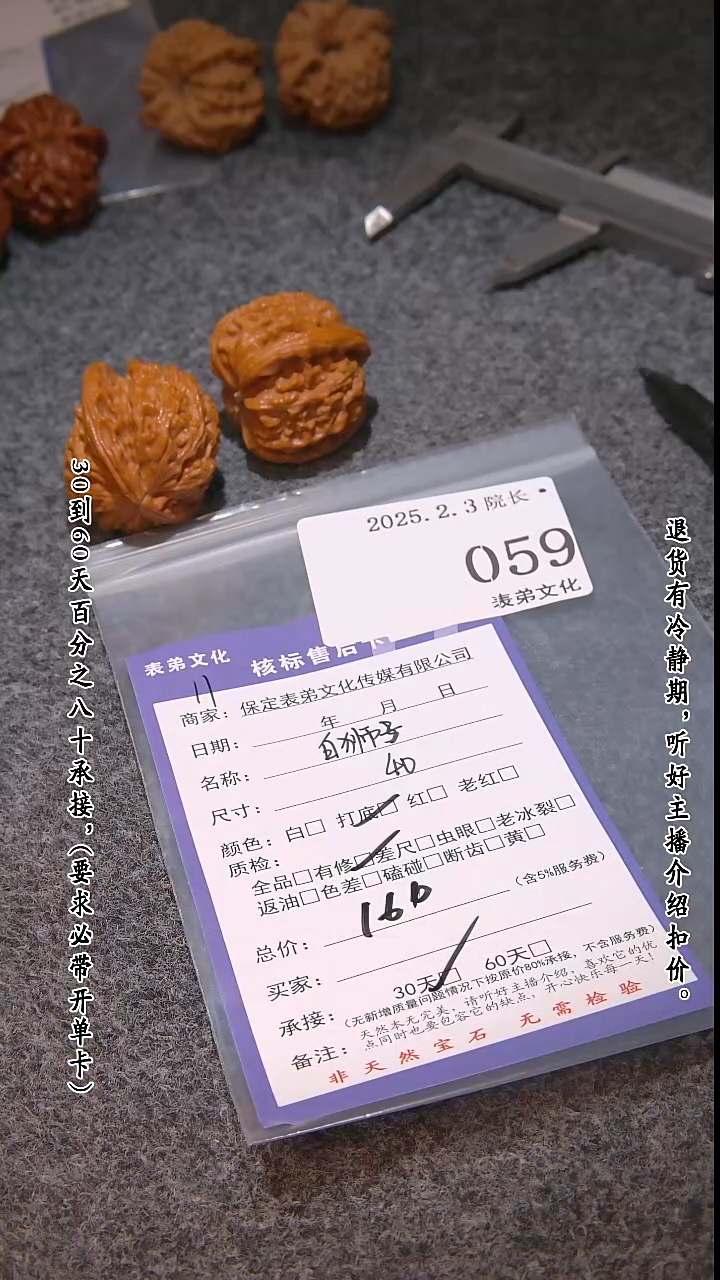 2025.2.3 院长
059
表弟文化
表弟文化 核标售后卡
11
商家：保定表弟文化传媒有限公司
日期： 年 月 日
名称： 白狮子
尺寸： 40
颜色：白□ 打底□ 红□ 老红□
质检：全品□有修□差尺□虫眼□老冰裂□
返油□色差□磕碰□断齿□黄□
总价： 160 （含5%服务费）
买家：
承接： 30天□ 60天□
（无新增质量问题情况下按原价80%承接，不含服务费）
备注：天然本无完美，请听好主播介绍，喜欢它的优
点同时也要包容它的缺点，开心快乐每一天！
非天然宝石 无需检验
30到60天百分之八十承接，（要求必带开单卡）
退货有冷静期，听好主播介绍扣价。